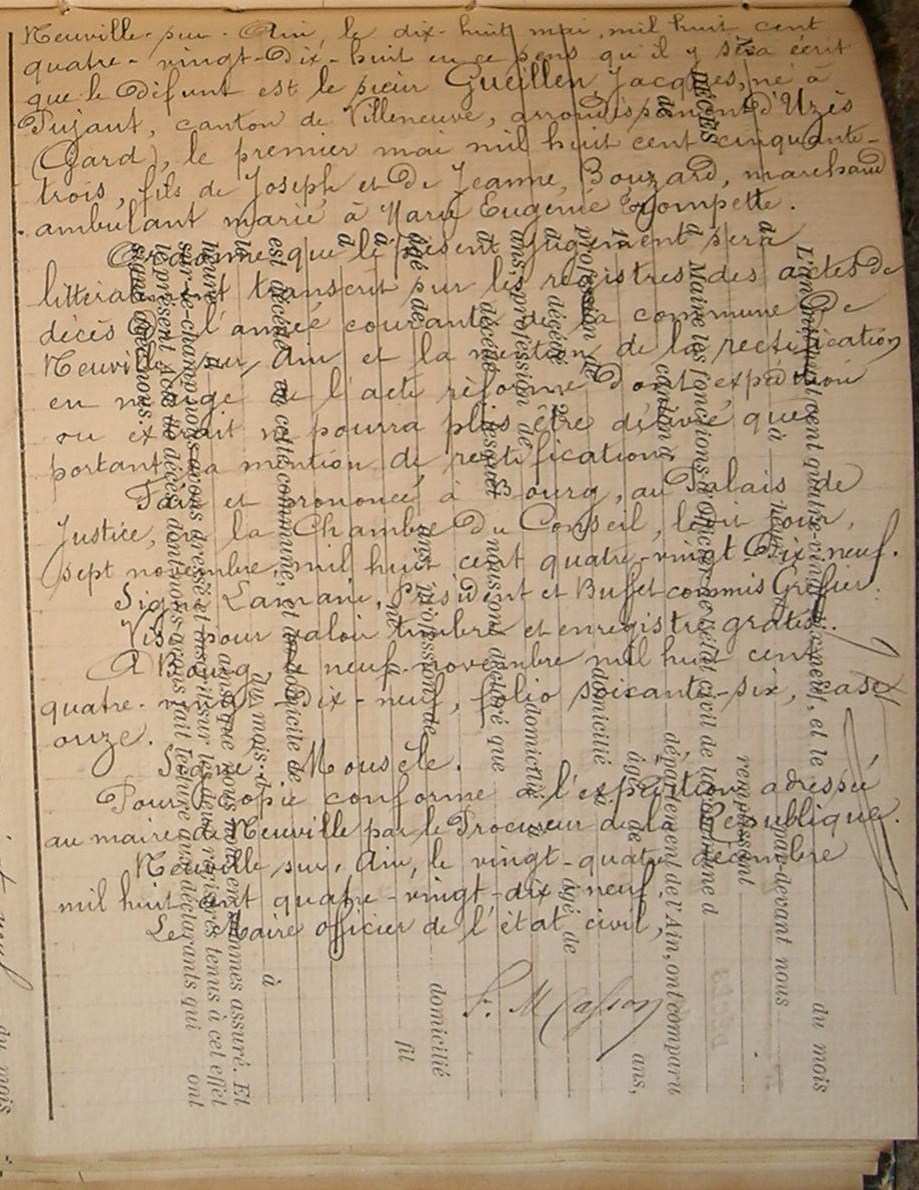 Neuville-sur-Ain, le dix-huit mai, mil huit cent
quatre-vingt-dix-huit en ce sens qu'il y sera écrit
que le défunt est le sieur Gueillen, Jacques, né à
Pujaut, canton de Villeneuve, arrondissement d'Uzès
(Gard), le premier mai mil huit cent cinquante-
trois, fils de Joseph et de Jeanne Bouzard, marchand
ambulant marié à Marie Eugénie Trompette.
Ordonne que le présent jugement sera
littéralement transcrit sur les registres des actes de
décès de l'année courante de la commune de
Neuville sur Ain et la mention de la rectification
en marge de l'acte réformé dont expédition
ou extrait ne pourra plus être délivré que
portant la mention de rectification.
Fait et prononcé à Bourg, au Palais de
Justice, la Chambre du Conseil, le dit jour,
sept novembre mil huit cent quatre-vingt Dix neuf.
Signé Président et Buffet commis Greffier.
Visé pour valoir timbre et enregistré gratis.
A Bourg le neuf novembre mil huit cent
quatre-vingt-Dix-neuf, folio soixante-six, case
onze.
Signé: Mousèle.
Pour copie conforme à l'expédition adressée
au maire de Neuville par le Procureur de la République.
Neuville sur Ain, le vingt-quatre décembre
mil huit cent quatre-vingt-dix-neuf
Le Maire officier de l'état civil,
DÉCÈS
de
L'an mil huit cent quatre-vingt et le du mois
d à heure par-devant nous
remplissant
Maire les fonctions d'Officier de l'état civil de la commune d
canton d département de l'Ain, ont comparu
1° âgé de ans,
profession de domicilié à
d décédé 2° âgé de
ans, profession de domicilié
d décédé lesquels nous ont déclaré que
âgé de ans profession de domicilié
à né à fil
d
est décédé en cette commune, et au domicile de
le du mois d à
heure d ainsi que nous nous en sommes assuré. Et
sur-le-champ nous avons dressé et inscrit sur les deux registres tenus à cet effet
le présent acte de décès, dont nous avons fait lecture aux déclarants qui ont
signé avec nous.
du mois